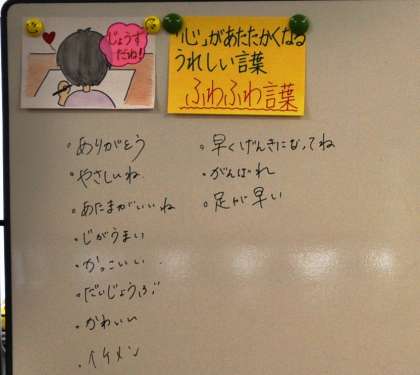 じょうず
だね!
「心」があたたかくなる
うれしい言葉
ふわふわ言葉
・ありがとう
・やさしいね
・あたまがいいね
・じがうまい
・かっこいい
・だいじょうぶ
・かわいい
・イケメン
・早くげんきになってね
・がんばれ
・足が早い